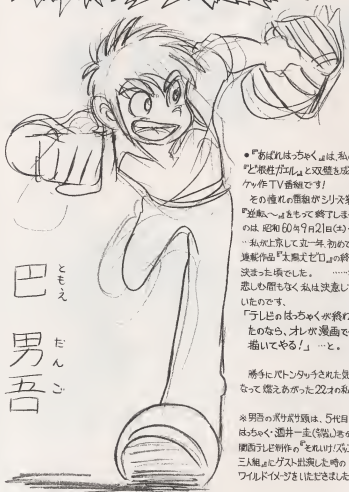 巴 男吾
ともえ だんご
●『あばれはっちゃく』は、私の
『ど根性ガエル』と双璧を成
ケッ作TV番組です!
その憧れの番組がシリーズ第
『逆転〜』をもって終了しま
のは、昭和60年9月21日(土)
…私が上京して丸一年、初めて
連載作品『太陽犬ゼロ』の終
決まった頃でした。 ……
悲しむ間もなく私は決意し
いたのです、
「テレビのはっちゃくが終わっ
たのなら、オレが漫画で
描いてやる!」…と。
勝手にバトンタッチされた気
なって燃えあがった22才の私
※男吾のボサボサ頭は、5代目
はっちゃく・酒井一圭
関西テレビ制作の『それいけ!ズッコ
三人組』にゲスト出演した時の
ワイルドイメージをいただきました